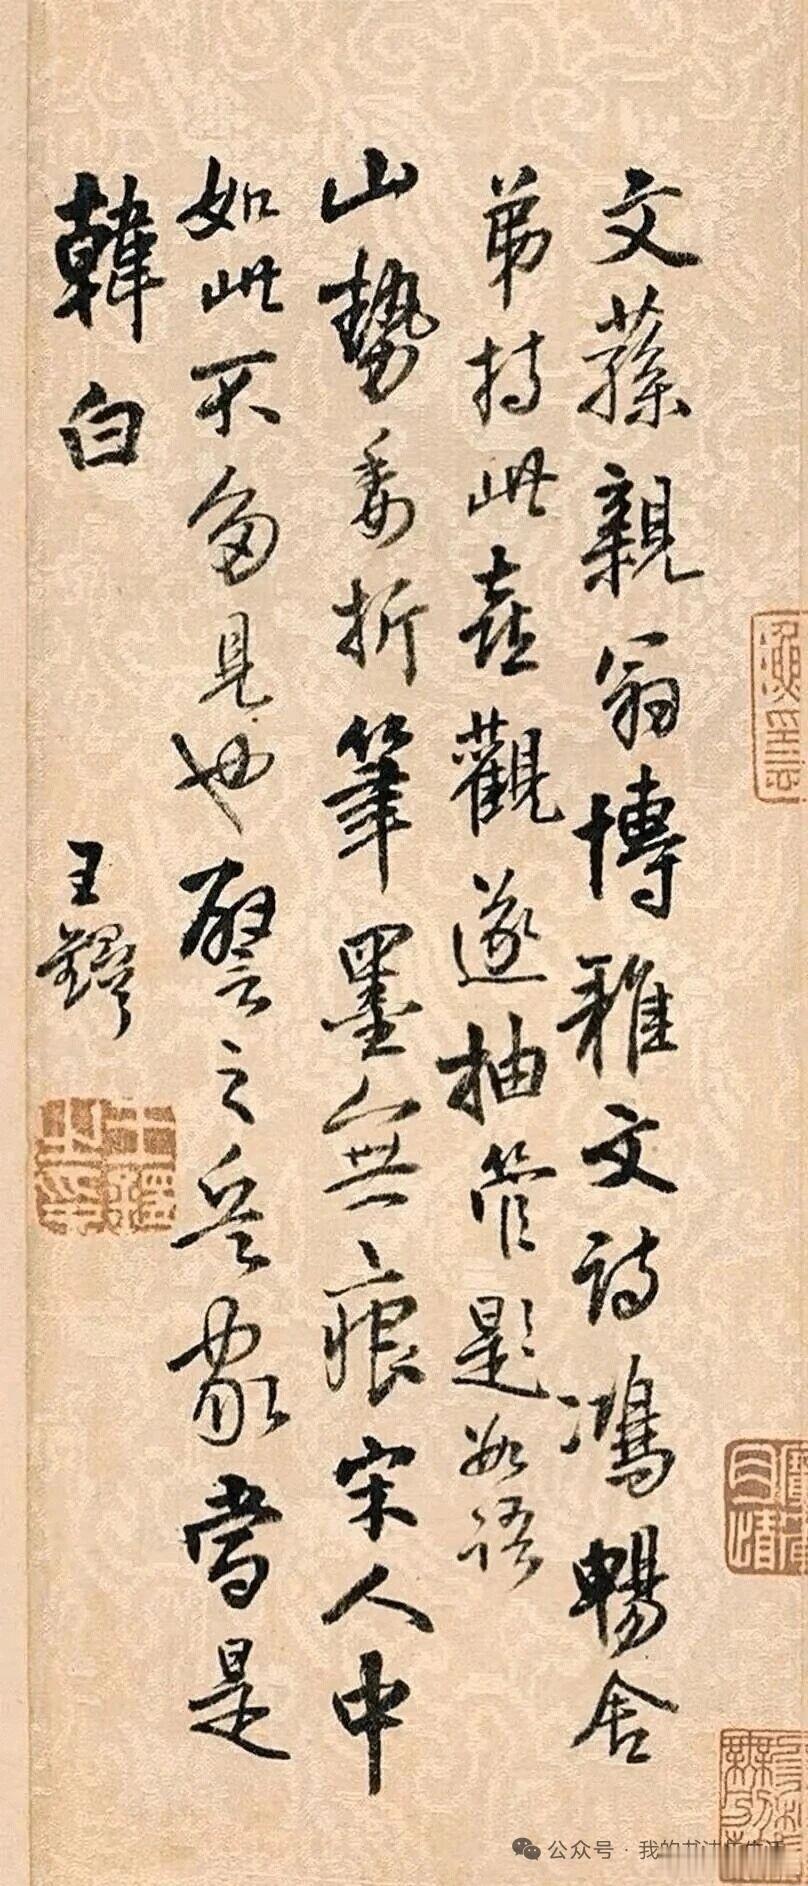 文蓀親翁博雅文詩鴻暢舍
弟持此喜觀遂抽管題數語
山勢委折筆墨無痕宋人中
如此不多見也譬之兵家當是
韓白
王鐸
公众号·我的书法